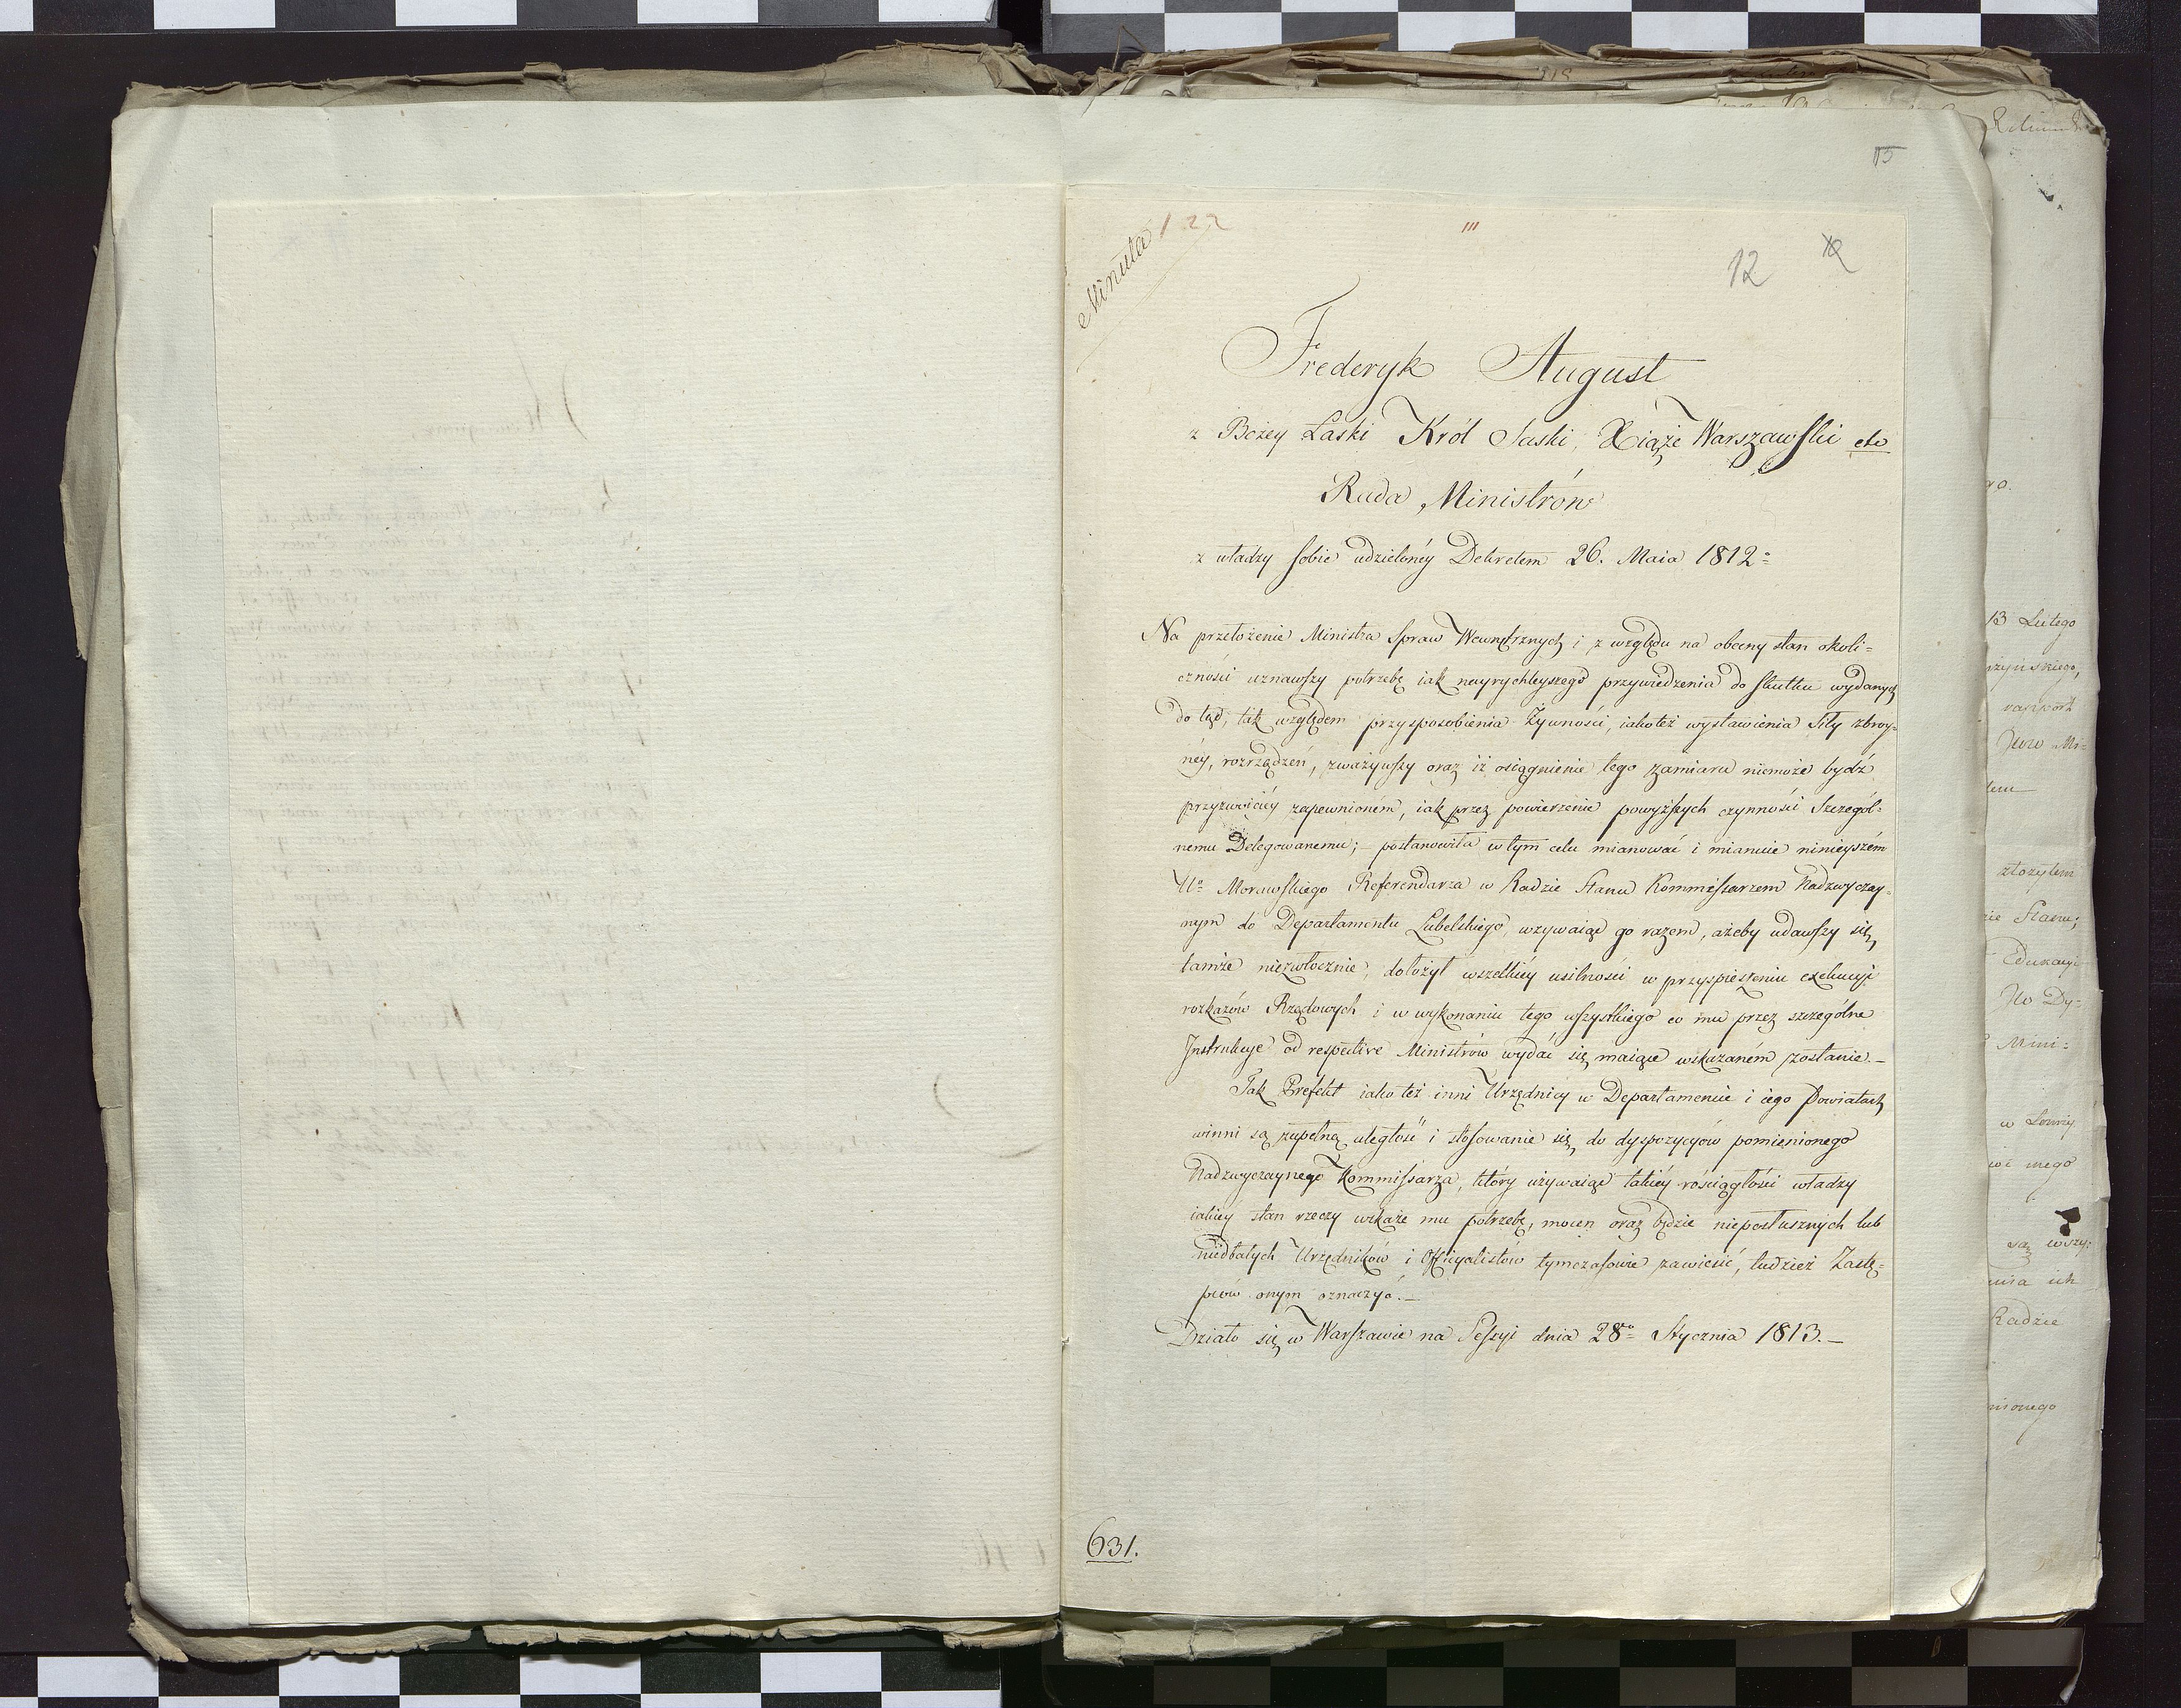 15
Minuta 122
12
Frederyk August
z Bożey Łaski Król Saski, Xiąże Warszawski etc
Rada Ministrów
z władzy sobie udzielonéy Dekretem 26. Maia 1812=
Na przełożenie Ministra Spraw Wewnętrznych i z względu na obecny stan okoli=
czności uznawszy potrzebę iak nayrychleyszego przywiedzenia do skutku wydanych
do tąd, tak względem przysposobienia Żywności, iako też wystawienia Siły zbroy=
néy, rozrządzeń, zważywszy oraz iż osiągnienie tego zamiaru niemoże bydź
przyzwoiciéy zapewnioném, iak przez powierzenie powyższych czynności Szczegól=
nemu Delegowanemu; – postanowiła w tym celu mianować i mianuie ninieyszém
Ur. Morawskiego Referendarza w Radzie Stanu Kommissarzem Nadzwyczay=
nym do Departamentu Lubelskiego, wzywaiąc go razem, ażeby udawszy się
tamże niezwłocznie, dołożył wszelkiéy usilności w przyspieszeniu exekucyi
rozkazów Rządowych i w wykonaniu tego wszystkiego co mu przez szczególne
Instrukcye od respective Ministrów wydać się maiące wskazaném zostanie. –
Tak Prefekt iako też inni Urzędnicy w Departamencie i iego Powiatach
winni są zupełną uległość i stosowanie się do dyspozycyów pomienionego
Nadzwyczaynego Kommissarza, który używaiąc takiéy rościągłości władzy
iakiey stan rzeczy wskaże mu potrzebę, mocen oraz będzie nieposłusznych lub
niedbałych Urzędników i Officyalistów tymczasowie zawiesić, tudzież Zastę=
pców onym oznaczyć. –
Działo się w Warszawie na Sessyi dnia 28go Stycznia 1813. –
631.
13 Lutego
rapport
złożyłem
Stanu;
Edukacyi
Dy=
Mini=
w
mego
są wszy=
ich
Radzie